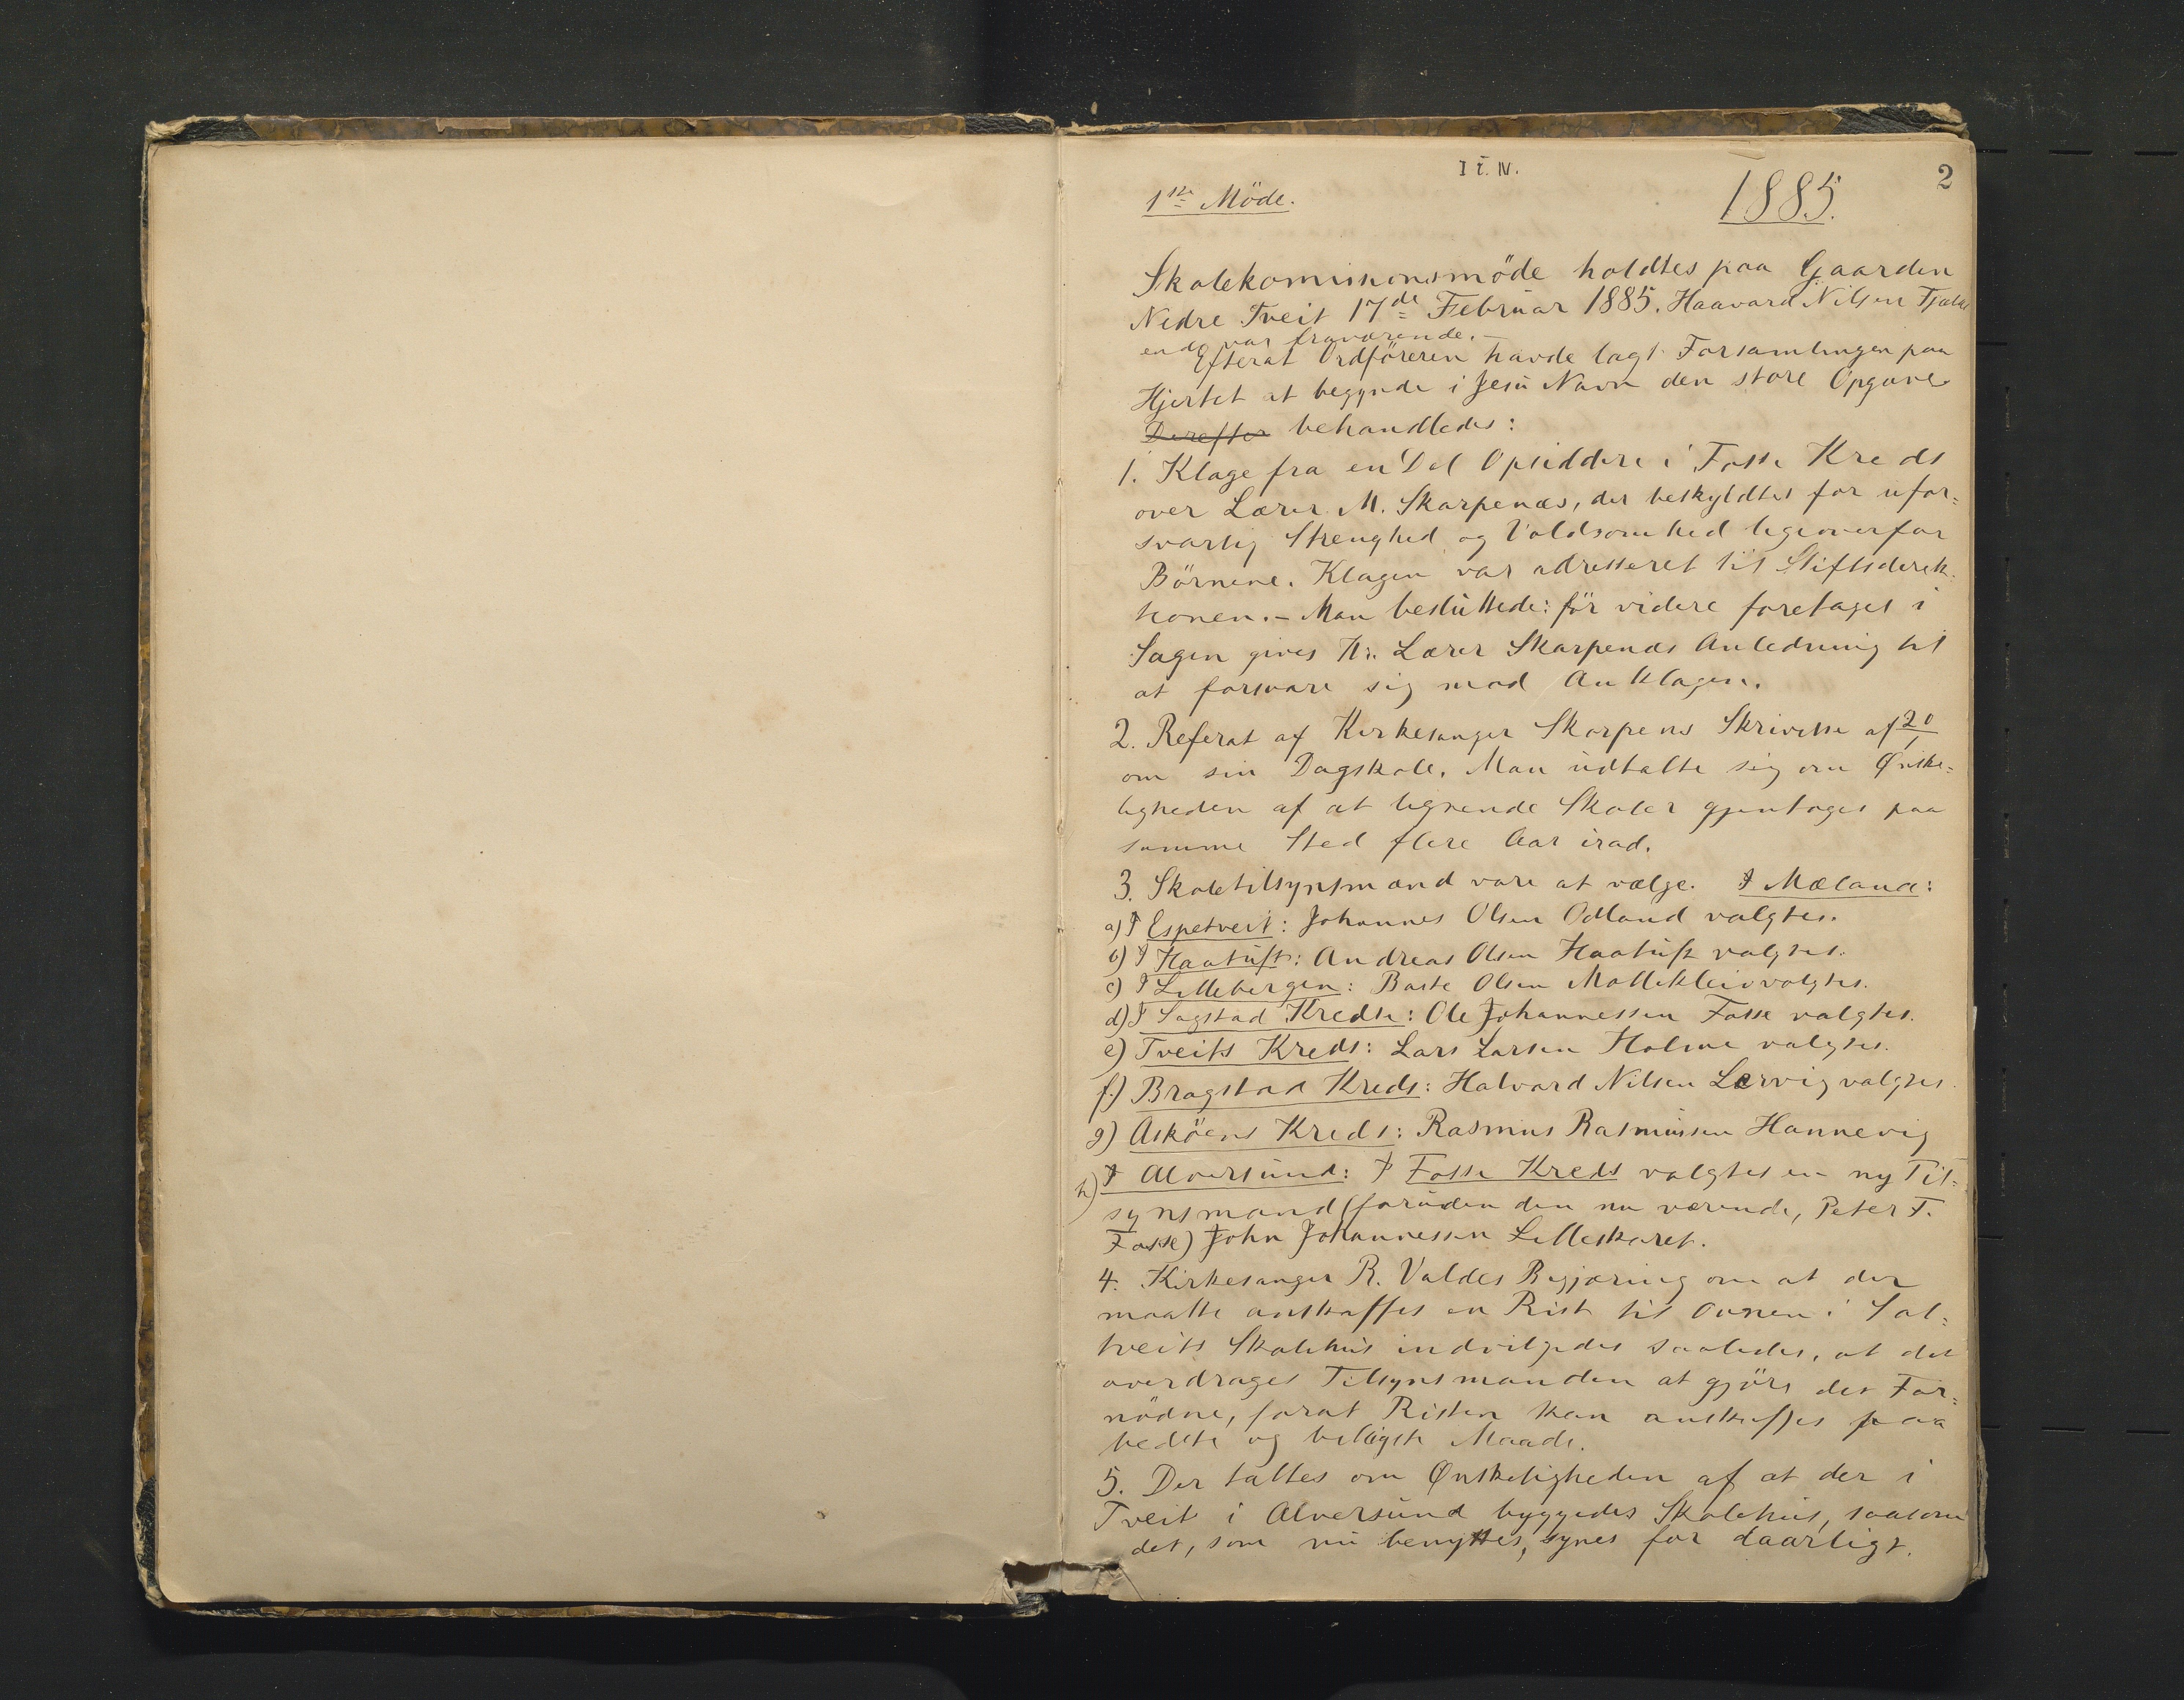 I i. N.
2
1ste Möde.
1885.
Skolekommissionsmöde holdtes paa Gaarden
Nedre Tveit 17de Februar 1885. Haavard Nilsen
ende var fraværende. –
Efterat Ordföreren havde lagt Forsamlingen paa
Hjertet at begynde i Jesu Navn den store Opgave
Derefter behandledes:
1. Klage fra en Del Opsiddere i Fosse Kreds
over Lærer M. Skarpenæs, der beskyldtes for ufor=
svarlig Strenghed og Voldsomhed ligeoverfor
Börnene. Klagen var adresseret til Stiftsdirek=
tionen. – Man besluttede: för videre foretages i
Sagen gives Hr. Lærer Skarpenæs Anledning til
at forsvare sig mod Anklagen.
2. Referat af Kirkesanger Skarpens Skrivelse af 20/1
om sin Dagskole. Man udtalte sig om Ønske=
ligheden af at lignende Skoler gjentages paa
samme Sted flere Aar irad.
3. Skoletilsynsmænd vare at vælge. I Mæland:
a) I Espetveit: Johannes Olsen Odland valgtes.
b) I Haatuft: Andreas Olsen Haatuft valgtes.
c) I Lillebergen: Baste Olsen Mollekleiv valgtes.
d) I Sagstad Kredse: Ole Johannessen Fosse valgtes.
e) Tveits Kreds: Lars Larsen Holme valgtes.
f.) Bragstad Kreds: Halvard Nilsen Lervig valgtes.
g) Asköens Kreds: Rasmus Rasmussen Hannevig
h) I Alversund: I Fosse Kreds valgtes en ny Til=
synsmand (foruden den nu værende, Peter T.
Fosse) John Johannessen Lilleskaret.
4. Kirkesanger R. Valdes Begjæring om at der
maatte anskaffes en Rist til Ovnen i Sol=
tveits Skolehus indvilgedes saaledes, at det
overdrages Tilsynsmanden at gjöre det For=
nödne, forat Risten kan anskaffes paa
bedste og billigste Maade.
5. Der taltes om Ønskeligheden af at der i
Tveit i Alversund byggedes Skolehus, saasom
det, som nu benyttes, synes for daarligt.